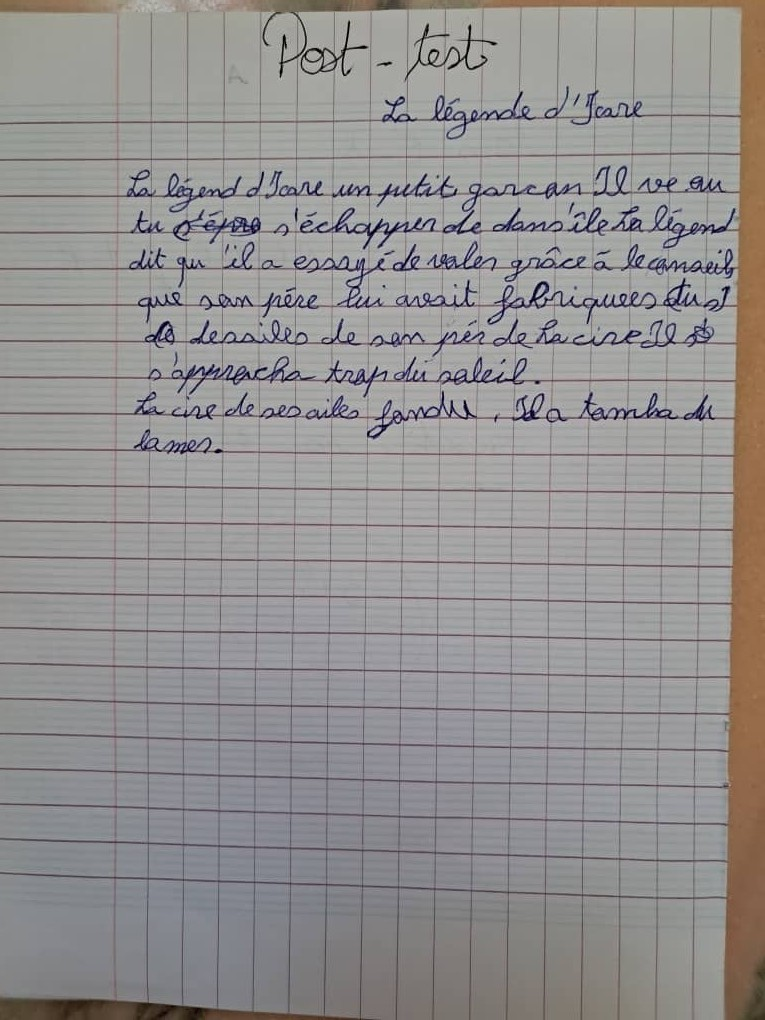 Post - test
La légende d'Icare
La légend d'Icare un petit garcan Il ve au
tu s'échapper de dans'île La légend
dit qu'il a essayé de valer grâce à le conseils
que san père lui avait fabriquees
des ailes de san pér de la cire Il
s'approcha trap du saleil.
La cire de ses ailes fandu, Il a tamba du
la mer.